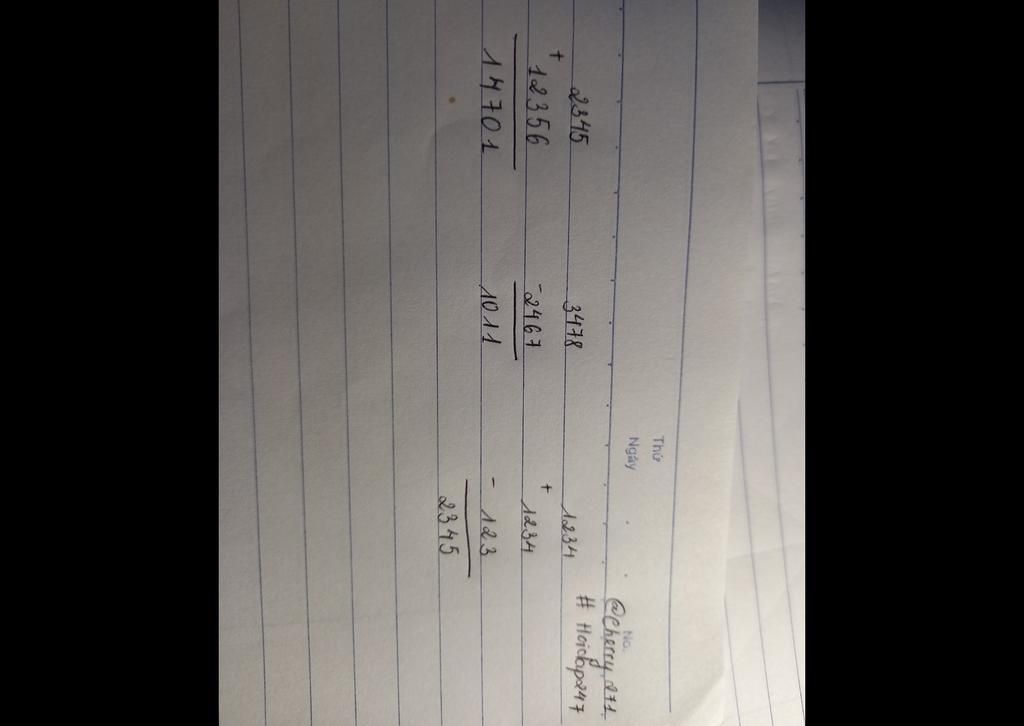 Thứ
Ngày
No.
@Cherry_271.
# Hoidap247
2345
+ 12356
14701
3478
- 2467
1011
1234
+ 1234
- 123
2345